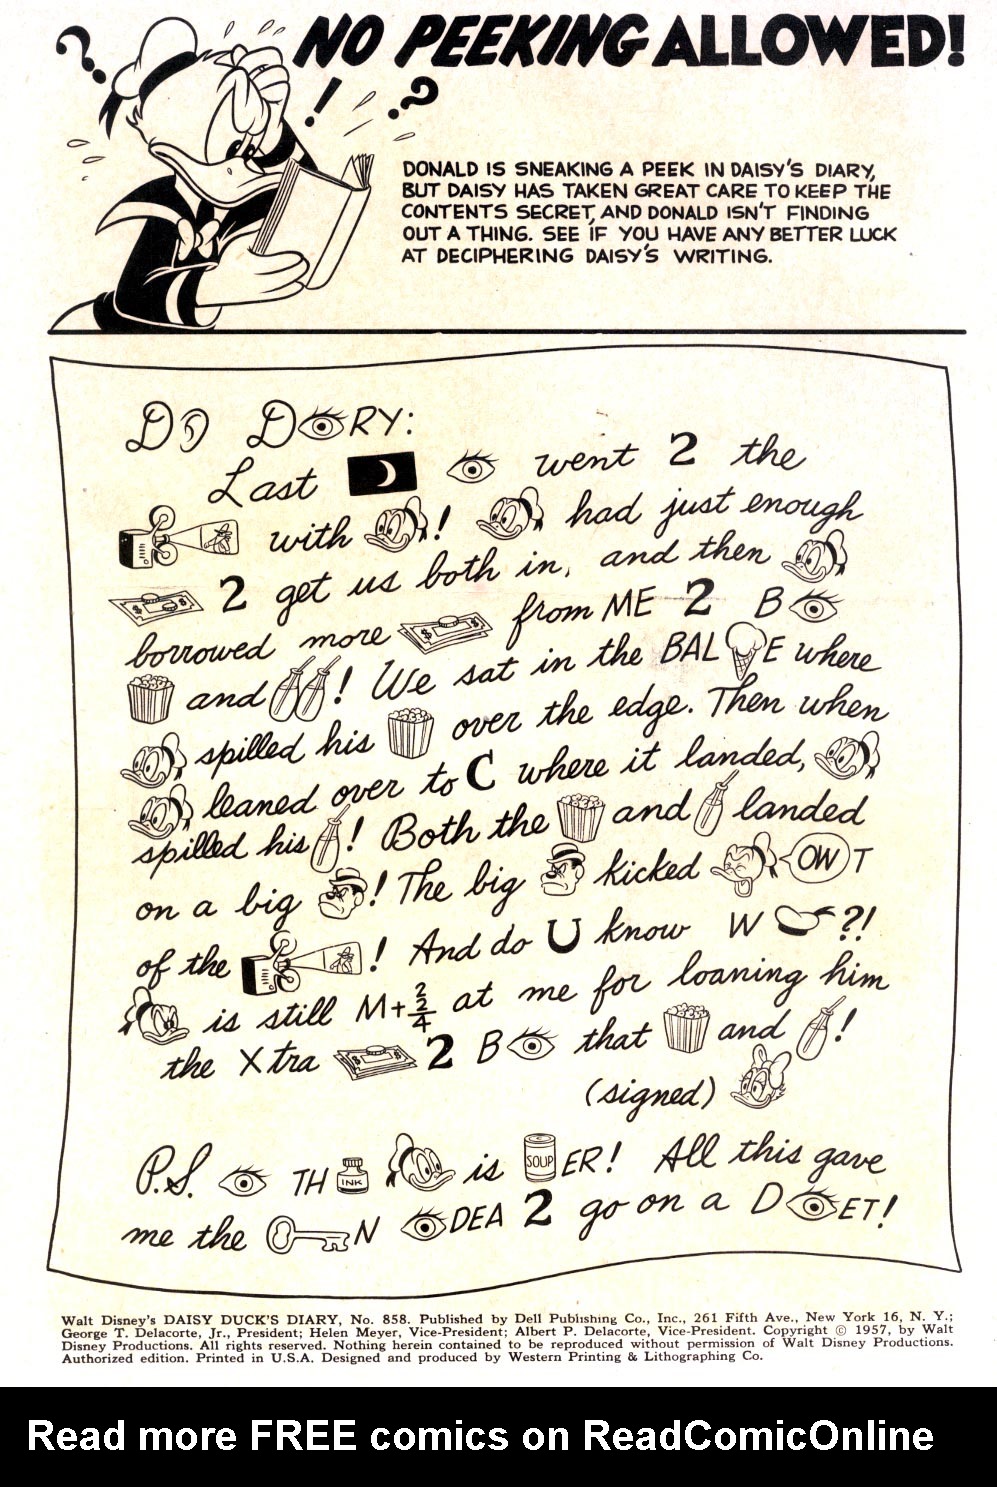 NO PEEKING ALLOWED!
DONALD IS SNEAKING A PEEK IN DAISY'S DIARY,
BUT DAISY HAS TAKEN GREAT CARE TO KEEP THE
CONTENTS SECRET, AND DONALD ISN'T FINDING
OUT A THING. SEE IF YOU HAVE ANY BETTER LUCK
AT DECIPHERING DAISY'S WRITING.
D D RY:
Last went 2 the
with ! had just enough
2 get us both in, and then
borrowed more from ME 2 B
and ! We sat in the BAL E where
spilled his over the edge. Then when
leaned over to C where it landed,
spilled his ! Both the and landed
on a big ! The big kicked OW T
of the ! And do U know W ?!
is still M+2/2/4 at me for loaning him
the Xtra 2 B that and !
(signed)
P.S. TH INK is SOUP ER! All this gave
me the N DEA 2 go on a D ET!
Walt Disney's DAISY DUCK'S DIARY, No. 858. Published by Dell Publishing Co., Inc., 261 Fifth Ave., New York 16, N. Y.;
George T. Delacorte, Jr., President; Helen Meyer, Vice-President; Albert P. Delacorte, Vice-President. Copyright © 1957, by Walt
Disney Productions. All rights reserved. Nothing herein contained to be reproduced without permission of Walt Disney Productions.
Authorized edition. Printed in U.S.A. Designed and produced by Western Printing & Lithographing Co.
Read more FREE comics on ReadComicOnline